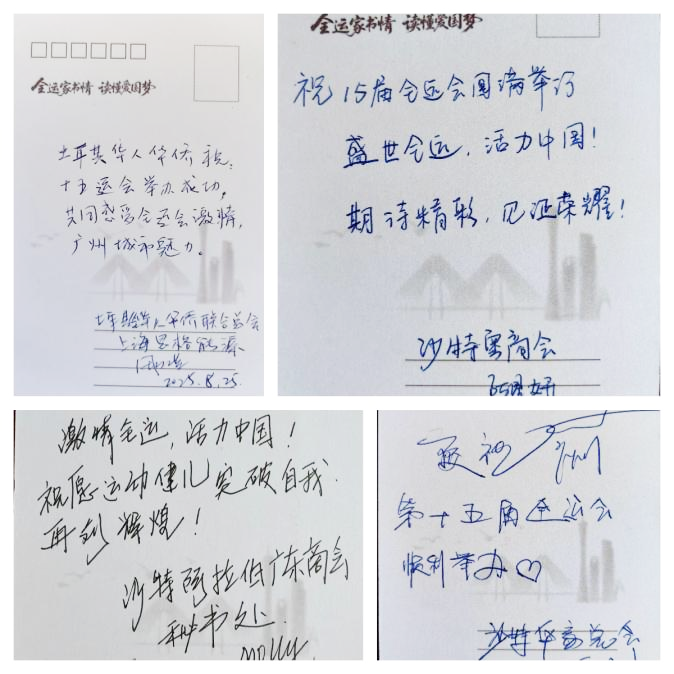 全运家书情 读懂爱国梦
土耳其华人华侨祝：
十五运会举办成功，
共同感受全运会激情，
广州城市魅力。
华侨联合总会
上海思格能源
2025.8.25.
全运家书情 读懂爱国梦
祝15届全运会圆满举行
盛世全运，活力中国！
期待精彩，见证荣耀！
沙特粤商会
激情全运，活力中国！
祝愿运动健儿突破自我.
再创辉煌！
沙特阿拉伯广东商会
秘书处.
Molly.
祝 广州
第十五届全运会
顺利举办♡
沙特华商总会